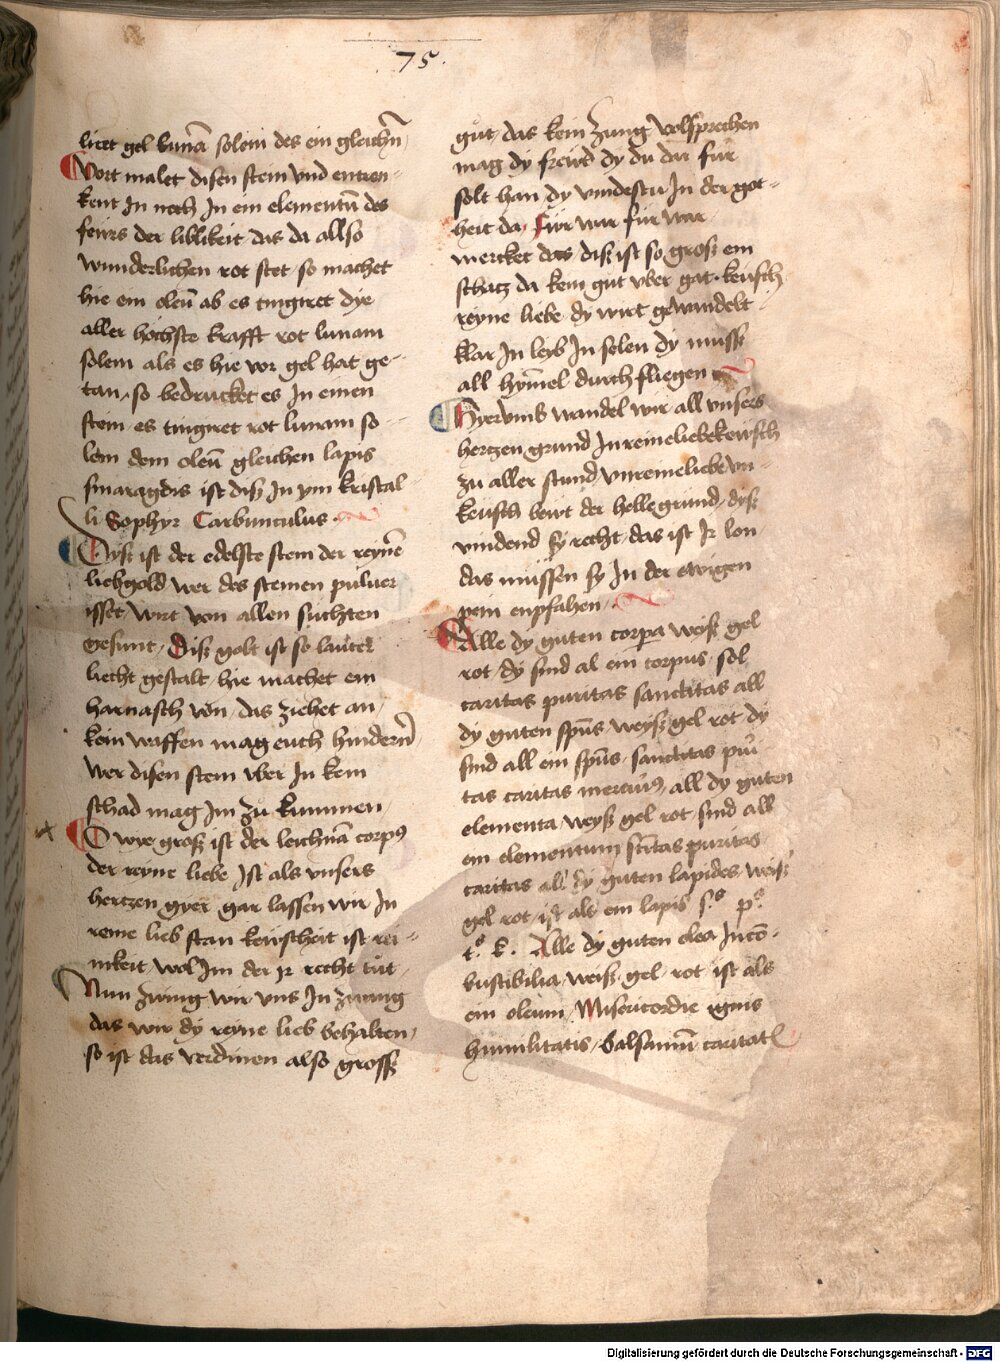 75.
licet gel lunā solem des ein gleichñ
Wort malet disen stein vnd entren-
kent In noch In ein elementū des
feurs der liblikeit das da allso
wunderlichen rot stet so machet
hie ein oleū ab es tingiret dye
aller höchste krafft rot lunam
solem als es hie vor gel hat ge-
tan, so bedrucket es In einen
stein es tingiret rot lunam so
lem dem oleū gleichen lapis
smaragdis ist disz In ym kristal
li Sophyr Carbunculus
Dysz ist der edelste stein der reynē
liebgold wer des steinen puluer
isset wirt von allen suchten
gesunt, Disz golt ist so lauter
liecht gestalt hie machet ein
harnasch von das ziehet an,
kein waffen mag euch hindern
wer disen stein vber In kein
schad mag Im zů kummen
O wye grosz ist der leichnā corpꝰ
der reyne liebe Ist als vnsers
hertzen gyer gar lassen wir In
reine lieb stan keuscheit ist rei-
nikeit wol Im der Ir recht tůt
Nun zwing wir vns In zwang
das wir dy reyne lieb behalten,
so ist das verdinen also grossz
gůt das kein zung volsprechen
mag dy freud dy du dar fur
solt han dy vindestu In der got-
heit da, Fůr war fur war
mercket das disz ist so grosz ein
schatz da kein gut vber gat keusch
reyne liebe dy wirt gewandelt
klar In leyb In selen dy mussz
all hymel durch fliegen
Hyervmb wandel wir all vnsers
hertzen grund In reine liebe keusch
zu aller stund vnreine liebe vn-
keusch bewt der helle grund, dysz
vindend sy recht das ist Ir lon
das mussen sy In der ewigen
pein enpfahen
Alle dy guten corpa weisz gel
rot dy sind al ein corpus sol
caritas puritas sanctitas all
dy guten spūs weysz gel rot dy
sind all ein spūs sanctitas puri
tas caritas mercurꝰ all dy guten
elementa weysz gel rot sind all
ein elementum scītas puritas
caritas all dy guten lapides weisz
gel rot ist als ein lapis s.ˢ p.ˢ
t.ˢ k. Alle dy guten olea Incō-
bustibilia weisz gel rot ist als
ein oleum Misericordie ignis
humilitatis balsamū caritatꝭ
Digitalisierung gefördert durch die Deutsche Forschungsgemeinschaft - DFG